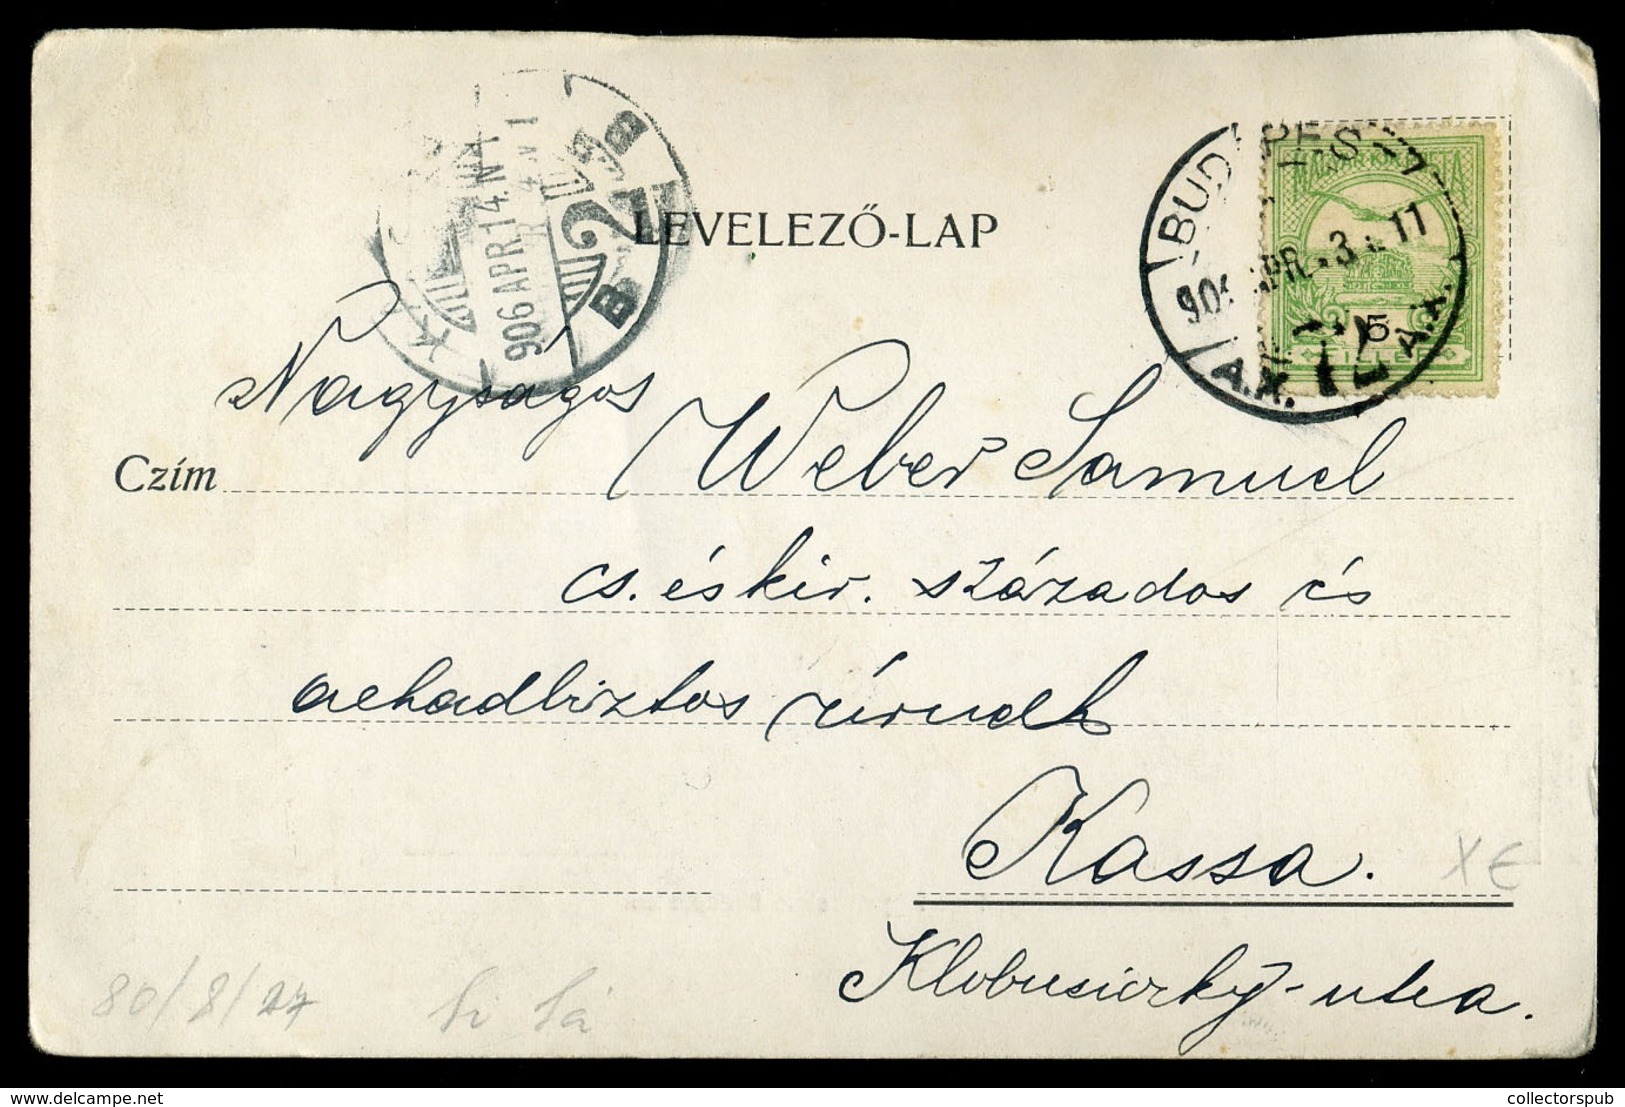 LEVELEZŐ-LAP
906 APR 14. N 1
BUDAPEST
906 APR. - 3 11
MAGYAR KIR. POSTA
5
FILLÉR
Nagyságos Weber Samuel
Czím
cs. és kir. százados és
hadbiztos úrnak
Kassa.
X E
Klobusiczky-utca.
80/8/27
collectorspub
http://www.delcampe.net